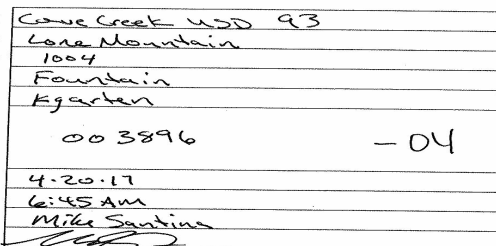 Cave Creek USD 93
Lone Mountain
1004
Fountain
Kgarten
003896 -04
4.20.17
6:45 AM
Mike Santina